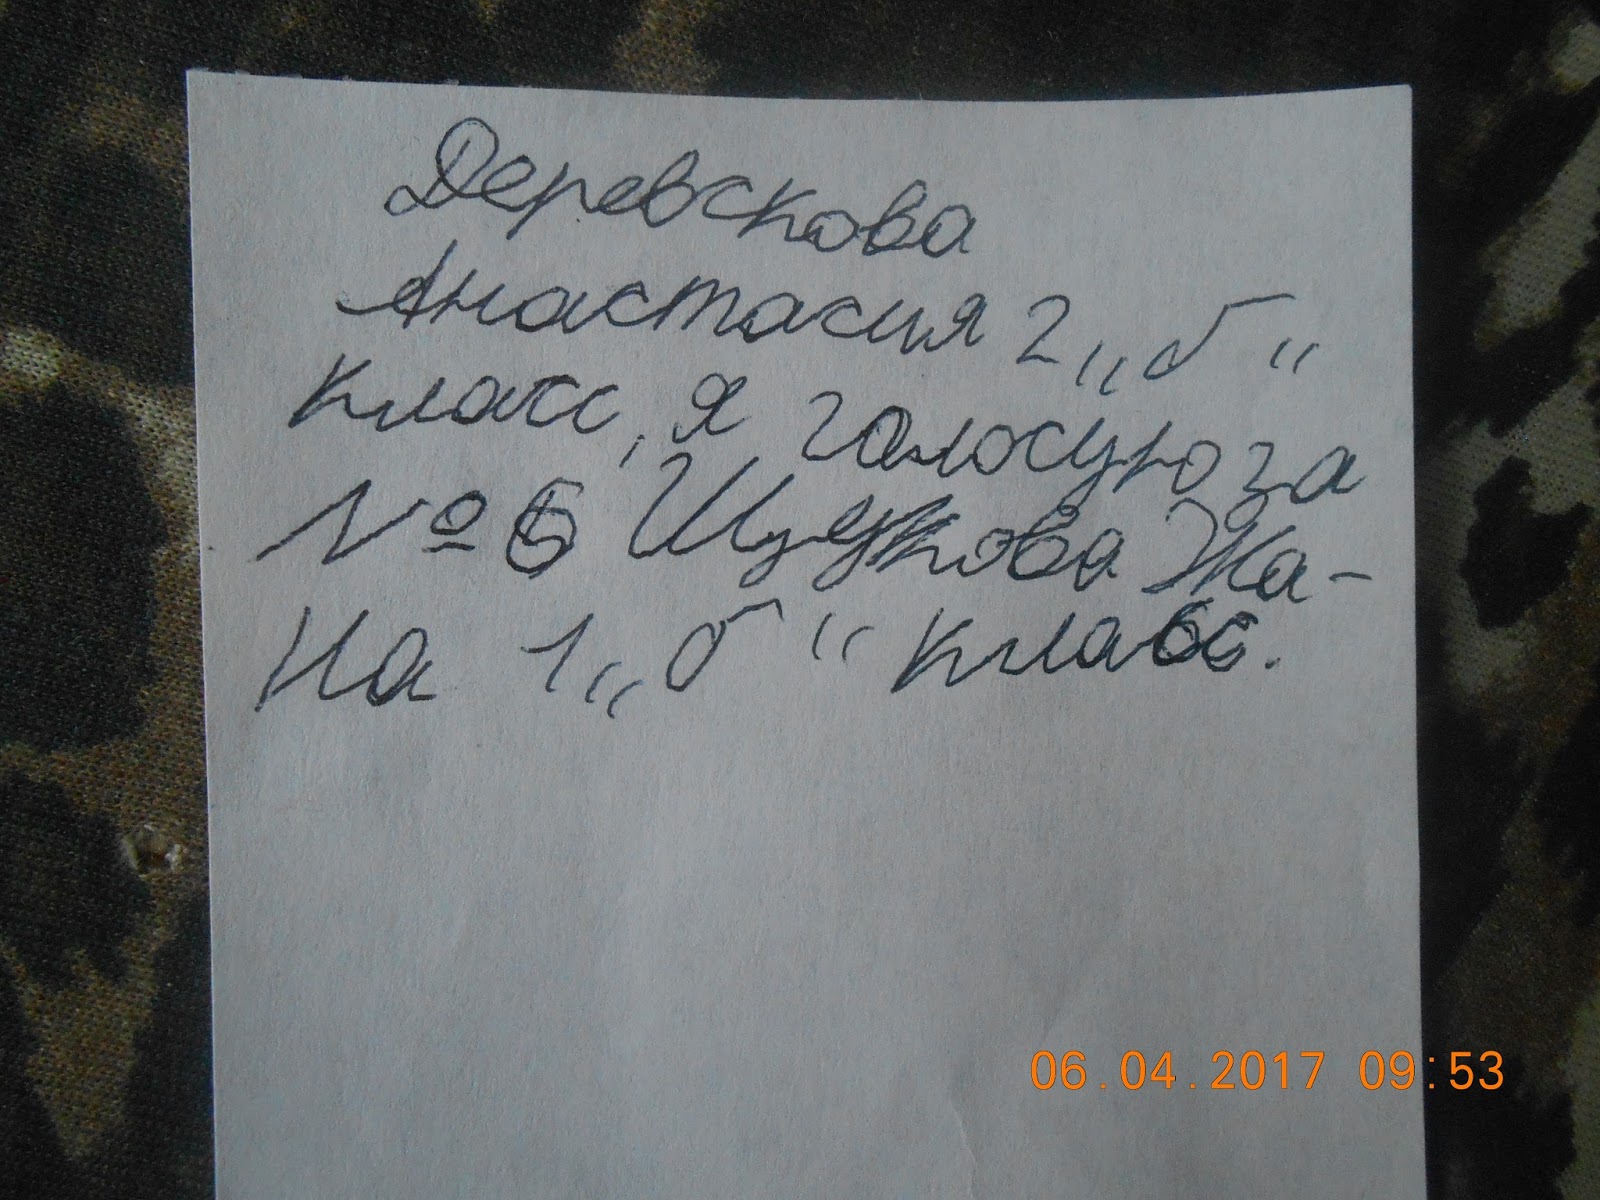 Деревскова
Анастасия 2 „б“
класс, я голосую за
№ 5 Шушкова Жа-
на 1 „б“ класс.
06.04.2017 09:53